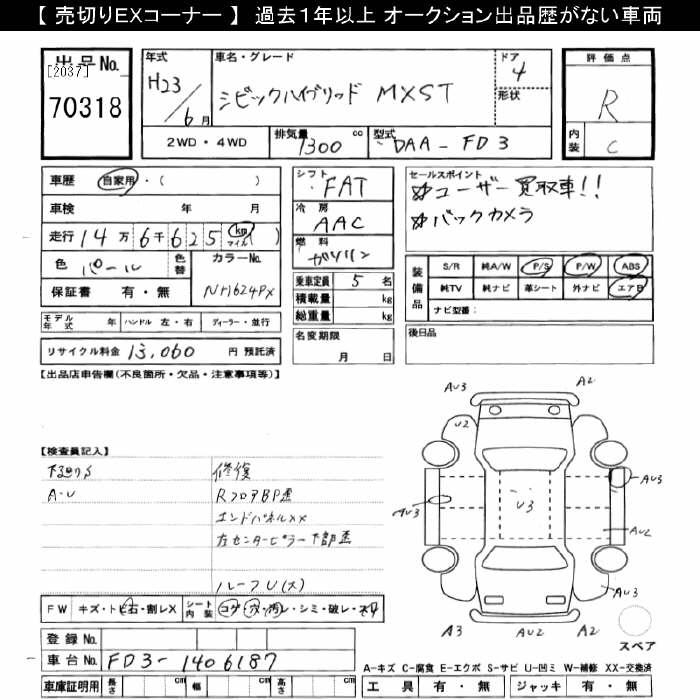 【 売切りEXコーナー 】 過去１年以上 オークション出品歴がない車両
出品No.
[2037]
70318
年式
H23/6月
車名・グレード
シビックハイブリッド MXST
ドア
4
形状
評価点
R
内装
C
2WD・4WD
排気量 1300 cc
型式 DAA-FD3
車歴 自家用・( )
車検 年 月
走行 14万6千625 km マイル ( )
色 パール
色替
カラーNo. NH624PX
保証書 有・無
シフト FAT
冷房 AAC
燃料 ガソリン
乗車定員 5 名
積載量 kg
総重量 kg
名変期限
月 日
セールスポイント
ユーザー買取車!!
バックカメラ
装備品
S/R 純A/W P/S P/W ABS
純TV 純ナビ 革シート 外ナビ エアB
ナビ型番:
後日品
モデル年式 年 ハンドル 左・右 ディーラー・並行
リサイクル料金 13,060 円 預託済
【出品店申告欄(不良箇所・欠品・注意事項等)】
【検査員記入】
下廻りS
A-U
修復
RフロアBP歪
エンドパネルXX
右センターピラー下部歪
ルーフU(大)
AU3 A2
U2
AU3
U3
AU3
AU2
AU3
A3 AU2 A2
スペア
FW キズ・トビ石・割レX
シート内装 コゲ・穴・汚レ・シミ・破レ・ネタ
登録No.
車台No. FD3-1406187
車庫証明用 長さ cm 幅 cm 高さ cm
A-キズ C-腐食 E-エクボ S-サビ U-凹ミ W-補修 XX-交換済
工具 有・無 ジャッキ 有・無